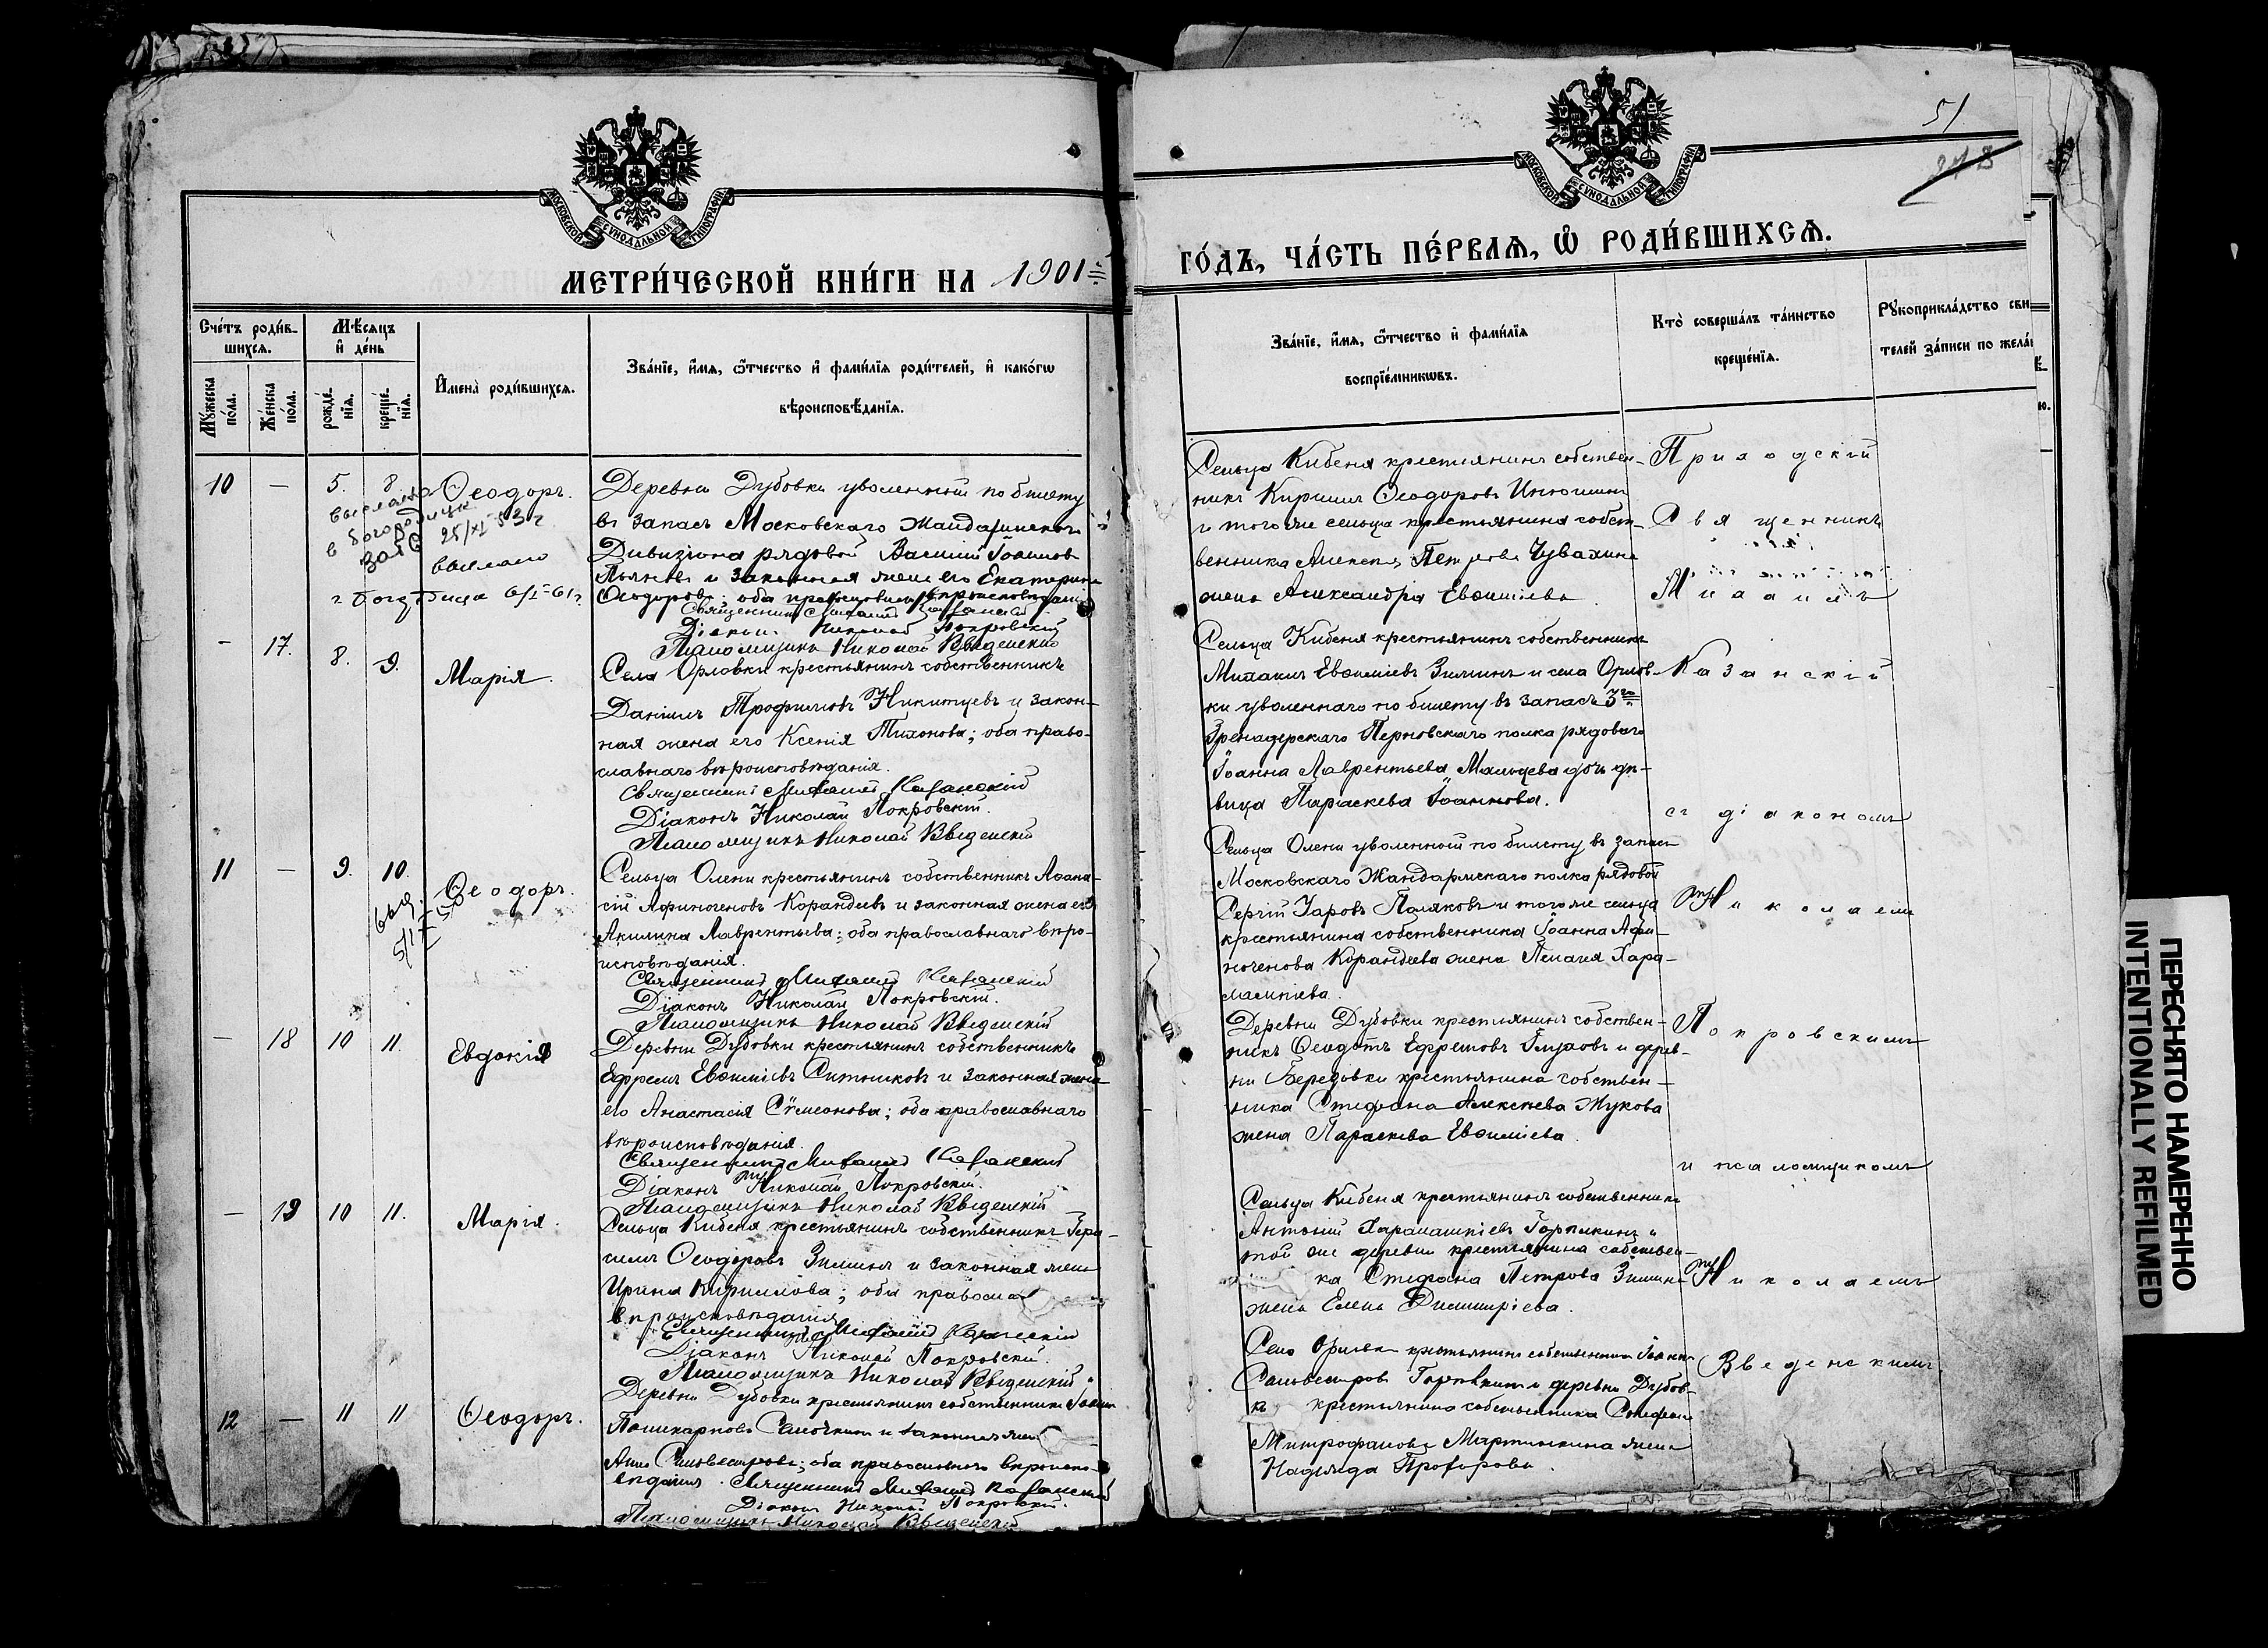 МОСКОВСКОЙ СѴНОДАЛЬНОЙ ТИПОГРАФІИ
МЕТРИ́ЧЕСКОЙ КНИ́ГИ НА 1901
Сче́тъ роди́в-
шихсѧ.
Мѣ́сѧцъ
и҆ де́нь
Мꙋ́жеска
по́ла.
Же́нска
по́ла.
рожде́-
нїѧ.
креще́-
нїѧ.
И҆мена̀ роди́вшихсѧ.
Зва́нїе, и҆́мѧ, ѻ҆́тчество и҆ фами́лїѧ роди́телей, и҆ како́гѡ
вѣроисповѣ́данїѧ.
10 — 5. 8. Ѳеодоръ.
выслано
в Богородицк
ЗАГС 25/XI 53 г.
выслано
г Богородицк 6/I-61 г.
Деревни Дубовки уволенный по билету
въ запасъ Московскаго Жандармскаго
Дивизіона рядовой Василій Іоанновъ
и законная жена его Екатерина
Ѳеодорова; оба православнаго вѣроисповѣданія
Священникъ Михаилъ Казанскій
Діаконъ Николай Покровскій
Псаломщикъ Николай Введенскій
— 17. 8. 9. Марія.
Села Орловки крестьянинъ собственникъ
Даніилъ Трофимовъ Никитцевъ и закон-
ная жена его Ксенія Тихонова; оба право-
славнаго вѣроисповѣданія.
Священникъ Михаилъ Казанскій
Діаконъ Николай Покровскій.
Псаломщикъ Николай Введенскій
11 — 9. 10. Ѳеодоръ.
Сельца Олени крестьянинъ собственникъ Аѳана-
сій Аѳиногеновъ Корандеевъ и законная жена его
Акилина Лаврентьева; оба православнаго вѣро-
исповѣданія.
Священникъ Михаилъ Казанскій
Діаконъ Николай Покровскій.
Псаломщикъ Николай Введенскій
— 18 10 11. Евдокія
Деревни Дубовки крестьянинъ собственникъ
Ефремъ Евѳиміевъ Ситниковъ и законная жена
его Анастасія Сѵмеонова; оба православнаго
вѣроисповѣданія.
Священникъ Михаилъ Казанскій
Діаконъ Николай Покровскій.
Псаломщикъ Николай Введенскій
— 19 10 11. Марія.
Сельца Кибеня крестьянинъ собственникъ Гера-
симъ Ѳеодоровъ Зиминъ и законная жена
Ирина Кириллова; оба православ
вѣроисповѣданія
Священникъ Михаилъ Казанскій
Діаконъ Николай Покровскій.
Псаломщикъ Николай Введенскій
12 — 11 11 Ѳеодоръ.
Деревни Дубовки крестьянинъ собственникъ Іоаннъ
Поликарповъ и законная жена
Анна Сильвестрова; оба православнаго вѣроиспо-
вѣданія. Священникъ Михаилъ Казанскій
Діаконъ Николай Покровскій.
Псаломщикъ Николай Введенскій
51
МОСКОВСКОЙ СѴНОДАЛЬНОЙ ТИПОГРАФІИ
ГО́ДЪ, ЧА́СТЬ ПЕ́РВАѦ, Ѽ РОДИ́ВШИХСѦ.
Зва́нїе, и҆́мѧ, ѻ҆́тчество и҆ фами́лїѧ
воспрїе́мникѡвъ.
Кто̀ соверша́лъ та́инство
креще́нїѧ.
Рꙋкоприкла́дство сви
телей за́писи по жела́
Сельца Кибеня крестьянинъ собствен-
никъ Кириллъ Ѳеодоровъ
и того же сельца крестьянина собст-
венника Алексѣя Петрова Чувахина
жена Александра Евѳиміева
Сельца Кибеня крестьянинъ собственникъ
Михаилъ Евѳиміевъ Зиминъ и села Орлов-
ки уволеннаго по билету въ запасъ 3го
Гренадерскаго Перновскаго полка рядового
Іоанна Лаврентьева Мальцева дочь дѣ-
вица Параскева Іоаннова.
Сельца Олени уволенный по билету въ запасъ
Московскаго Жандармскаго полка рядовой
Сергій Уаровъ Поляковъ и того же сельца
крестьянина собственника Іоанна Аѳи-
ногенова Корандеева жена Пелагія Хара-
лампіева.
Деревни Дубовки крестьянинъ собствен-
никъ Ѳеодотъ Ефремовъ Глуховъ и дерев-
ни Бередовки крестьянина собствен-
ника Стефана Алексѣева Жукова
жена Параскева Евѳиміева.
Сельца Кибеня крестьянинъ собственникъ
Антоній Харалампіевъ и
той же деревни крестьянина собствен-
ка Стефана Петрова Зимина
жена Елена Димитріева.
Села Орловки крестьянинъ собственникъ Іоаннъ
Сильвестровъ и деревни Дубов-
ки крестьянина собственника Стефана
Митрофанова Мартынкина жена
Надежда Прохорова.
Приходскій
Священникъ
Михаилъ
Казанскій
съ діакономъ
Николаемъ
Покровскимъ
и псаломщикомъ
Николаемъ
Введенскимъ.
ПЕРЕСНЯТО НАМЕРЕННО
INTENTIONALLY REFILMED